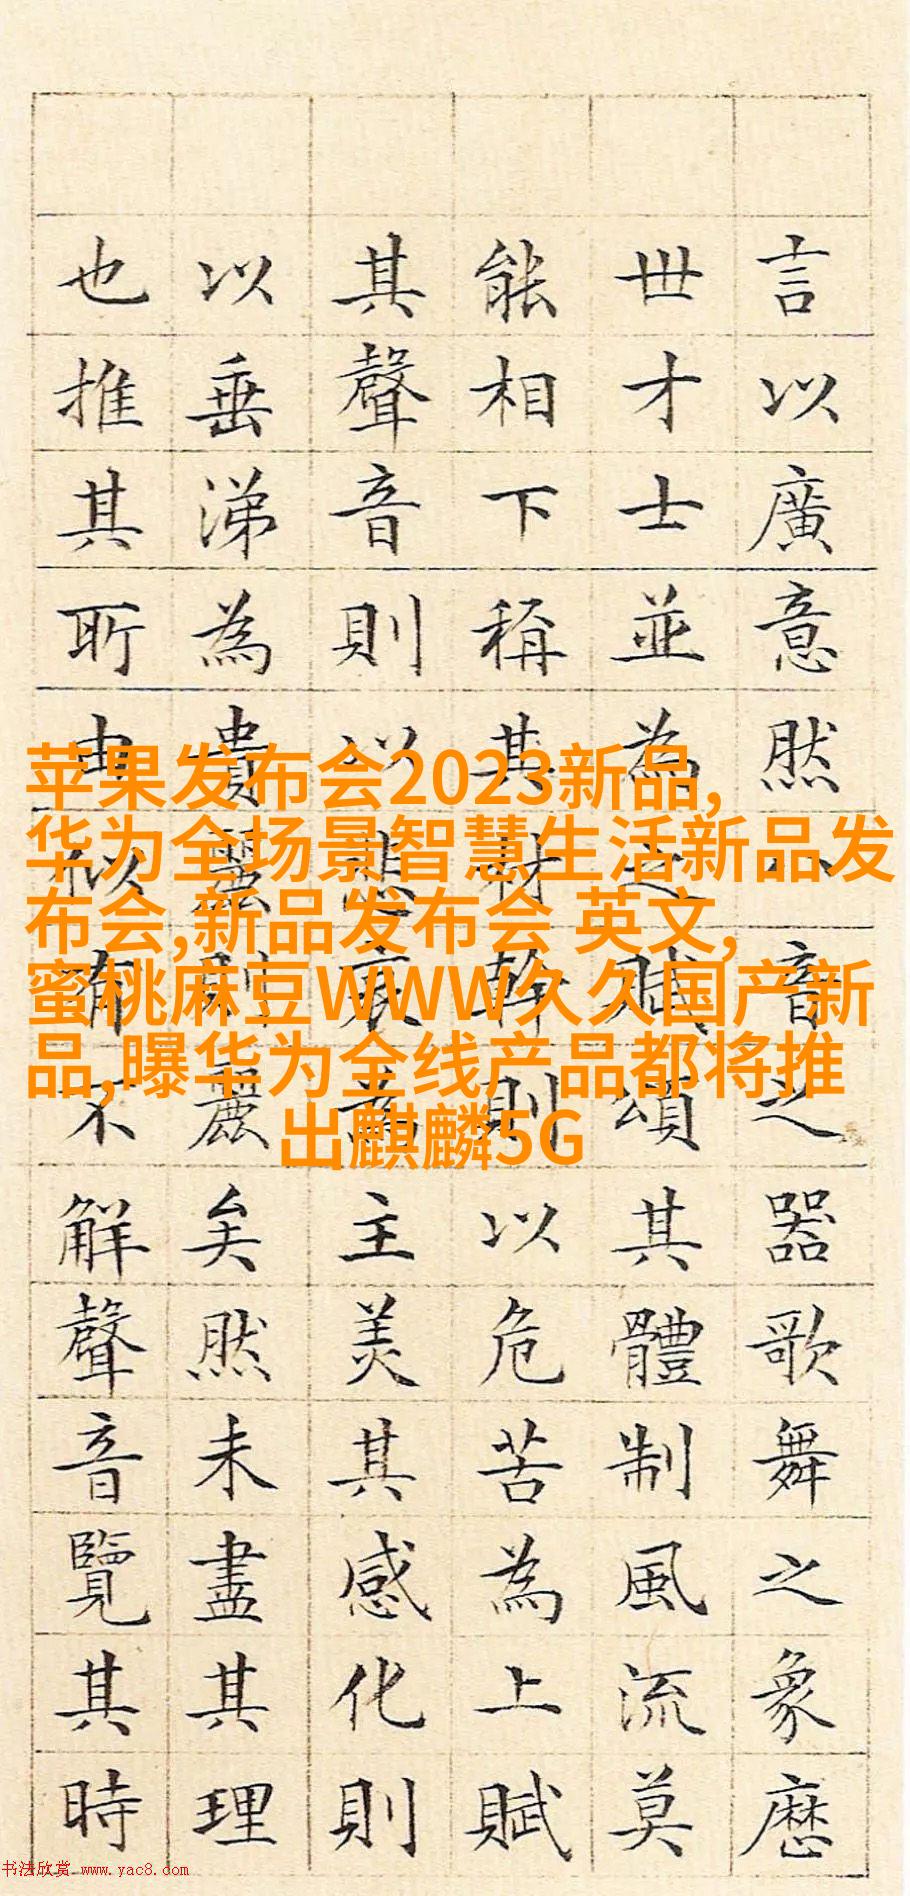 言以廣意然八音之器歌舞之象歷
世才士並為之賦頌其體制風流莫
能相下稱其材幹則以危苦為上賦
其聲音則以悲哀為主美其感化則
以垂涕為貴麗則麗矣然未盡其理
也推其所由似不解聲音覽其時
苹果发布会2023新品,
华为全场景智慧生活新品发
布会,新品发布会 英文,
蜜桃麻豆WWW久久国产新
品,曝华为全线产品都将推
出麒麟5G
书法欣赏 www.yac8.com